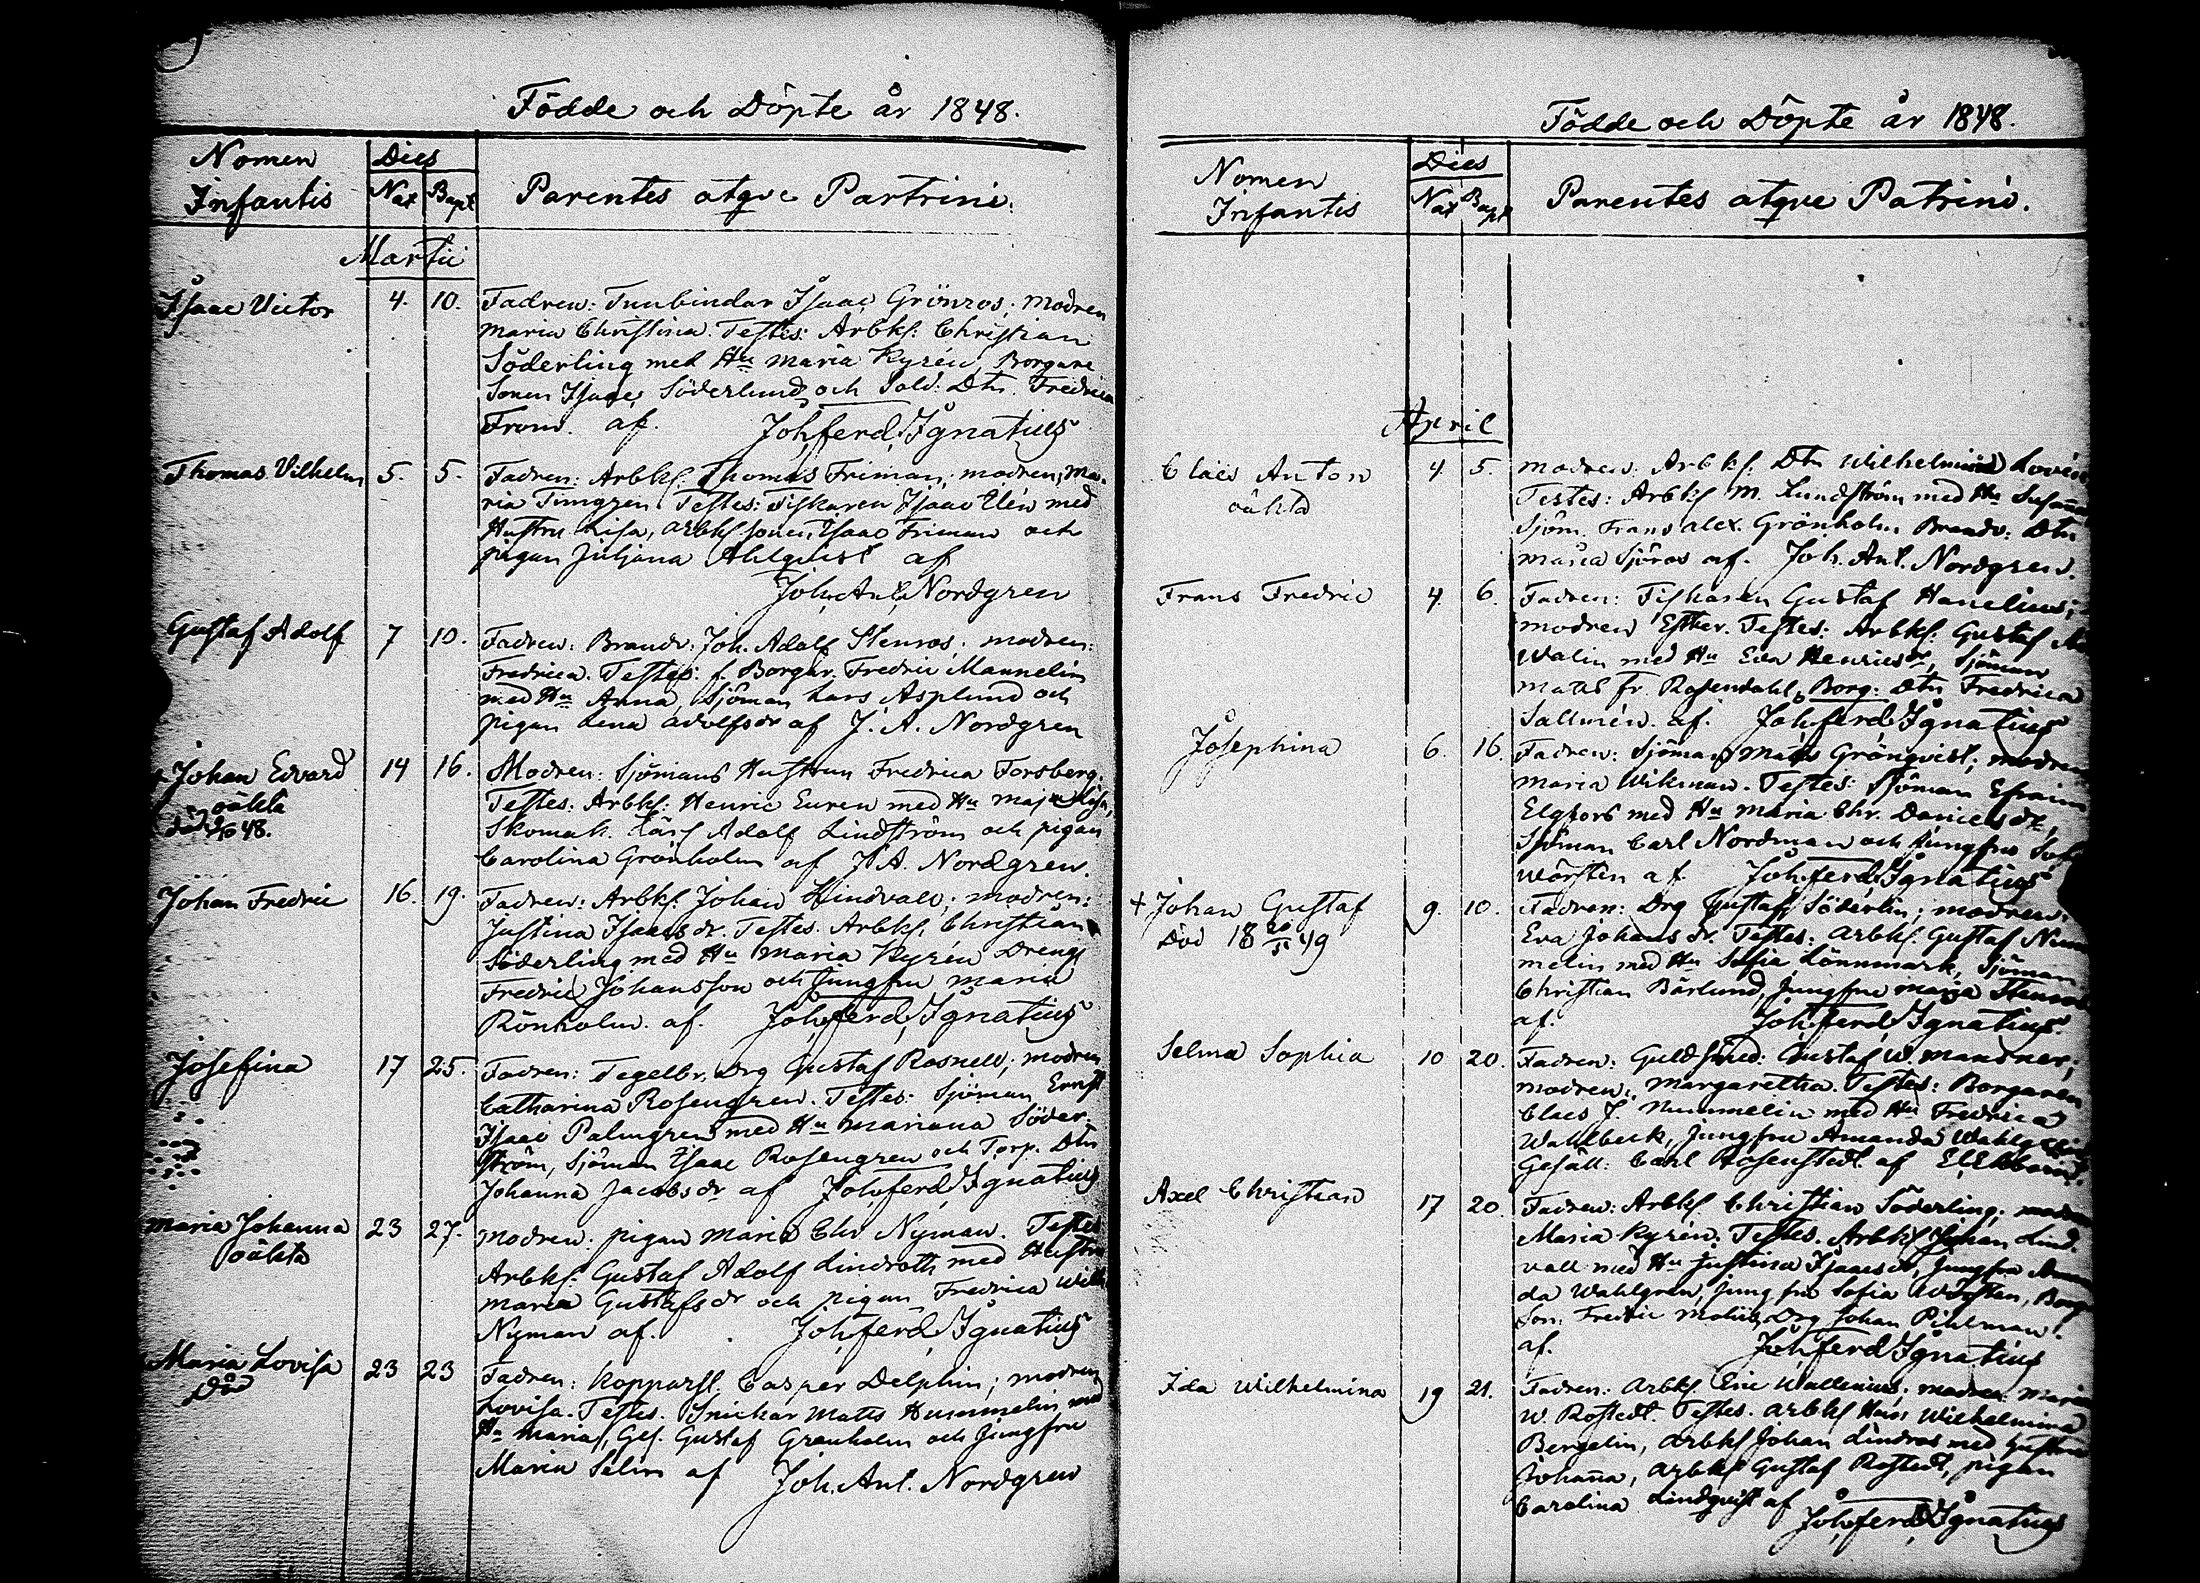 Födde och Döpte år 1848.
Nomen Infantis
Dies
Nat Bapt
Parentes atqve Partrini.
Martii
Isaac Victor 4. 10. Fadren: Tunbindar Isaac Grönros; modren
Maria Christina. Testes: Arbks: Christian
Söderling med Hu Maria Kyrén, Borgare
Sonen Isaac Söderlund och Sold. Dtr. Fredrica
From. af. Joh, ferd, Ignatius
Thomas Vilhelm 5. 5. Fadren: Arbks. Thomas Friman, modren, Ma-
ria Timgren Testes: Fiskaren Isaac Elén med
Hustru Lisa, arbks sonen, Isaac Friman och
pigan Juljana Ahlqvist af
Joh. Ant, Nordgren
Gustaf Adolf 7 10. Fadren: Brandv. Joh. Adolf Stenros; modren:
Fredrica. Testes: f. Borgar. Fredric Mannelin
med Hu Anna, Sjöman Lars Asplund och
pigan Lena Adolfsdr af J. A. Nordgren
+ Johan Edvard 14 16. Modren: Sjömans Hustrun Fredrica Forsberg.
oäkta Testes: Arbks: Henric Euren med Hu Maja Lisa,
död 48. Skomak. Lärl Adolf Lindström och pigan
Carolina Grönholm af J. A. Nordgren.
Johan Fredric 16. 19. Fadren: Arbks: Johan Lindvall; modren:
Justina Isaacsdr. Testes. Arbks, Christian
Söderling med Hu Maria Kyrén Dreng
Fredric Johansson och Jungfru Maria
Rönholm. af. Joh, ferd, Ignatius
Josefina 17 25. Fadren: Tegelbr. Drg Gustaf Rosnell; modren
Catharina Rosengren. Testes: Sjöman Ernst
Isaac Palmgren med Hu Mariana Söder-
ström, Sjöman Isaac Rosengren och Torp. Dtr
Johanna Jacobsdr af Joh, ferd, Ignatius
Maria Johanna 23 27. Modren: pigan Maria Chr Nyman. Testes
oäkta Arbks: Gustaf Adolf Lindroth med Hustru
Maria Gustafsdr och pigan Fredrica Wilh
Nyman af. Joh, ferd, Ignatius
Maria Lovisa 23 23 Fadren: Kopparsl. Casper Delphin; modren
Död Lovisa. Testes. Snickar Matts Hummelin med
Hu Maria, Ges. Gustaf Grenholm och Jungfru
Maria Selin af Joh. Ant. Nordgren
Födde och Döpte år 1848.
Nomen Infantis
Dies
Nat Bapt
Parentes atqve Patrini.
April
Claes Anton 4 5. Modren: Arbks. Dtr Wilhelmina Lovén
oäkta Testes: Arbks M. Lundström med Hu Susanna
Sjöm. Frans Alex. Grönholm Brandv: Dtr
Maria Sjöros af. Joh. Ant. Nordgren.
Frans Fredric 4. 6. Fadren: Fiskaren Gustaf Hanelius;
modren Esther. Testes: Arbks: Gustaf
Walin med Hu Eva Henricsdr, Sjöman
Matts fr. Rosendahl, Borg: Dtr Fredrica
Sallmén. af. Joh, ferd, Ignatius
Josephina 6. 16. Fadren: Sjöman Matts Grönqvist; modren
Maria Wikman. Testes: Sjöman Efraim
Elgfors med Hu Maria Chr. Danielsdr,
Sjöman Carl Nordman och Jungfru Sof.
Wärsten af. Joh, ferd, Ignatius
+ Johan Gustaf 9. 10. Fadren: Drg Gustaf Söderlin; modren:
Död 18 49 Eva Johansdr. Testes: Arbks: Gustaf Num
melin med Hu Sofia Lönnmark, Sjöman
Christian Bärlund, Jungfru Maja
af. Joh, ferd, Ignatius
Selma Sophia 10 20. Fadren: Guldsmed: Gustaf W. Mansner;
modren: Margaretha. Testes: Borgaren
Claes J. Nummelin med Hu Fredrica
Wahlbeck, Jungfru Amanda
Gesäll: Carl Rosenstedt af
Axel Christian 17 20. Fadren: Arbks Christian Söderling; modren
Maria Kyrén. Testes. Arbks Johan Lind-
vall med Hu Justina Isaacsdr, Jungfru Aman
da Wahlgren, Jungfru Sofia Wärsten, Borg
Son: Fredric Molin, Drg Johan Pihlman.
af. Joh, ferd, Ignatius
Ida Wilhelmina 19 21. Fadren: Arbks. Eric Wallenius; modren: Maria
W. Rostedt. Testes. Arbks Hans Wilhelmina
Bergelin, Arbks Johan Lindros med Hustru
Johanna, Arbks Gustaf Rostedt, pigan
Carolina Lindqvist af Joh, ferd, Ignatius